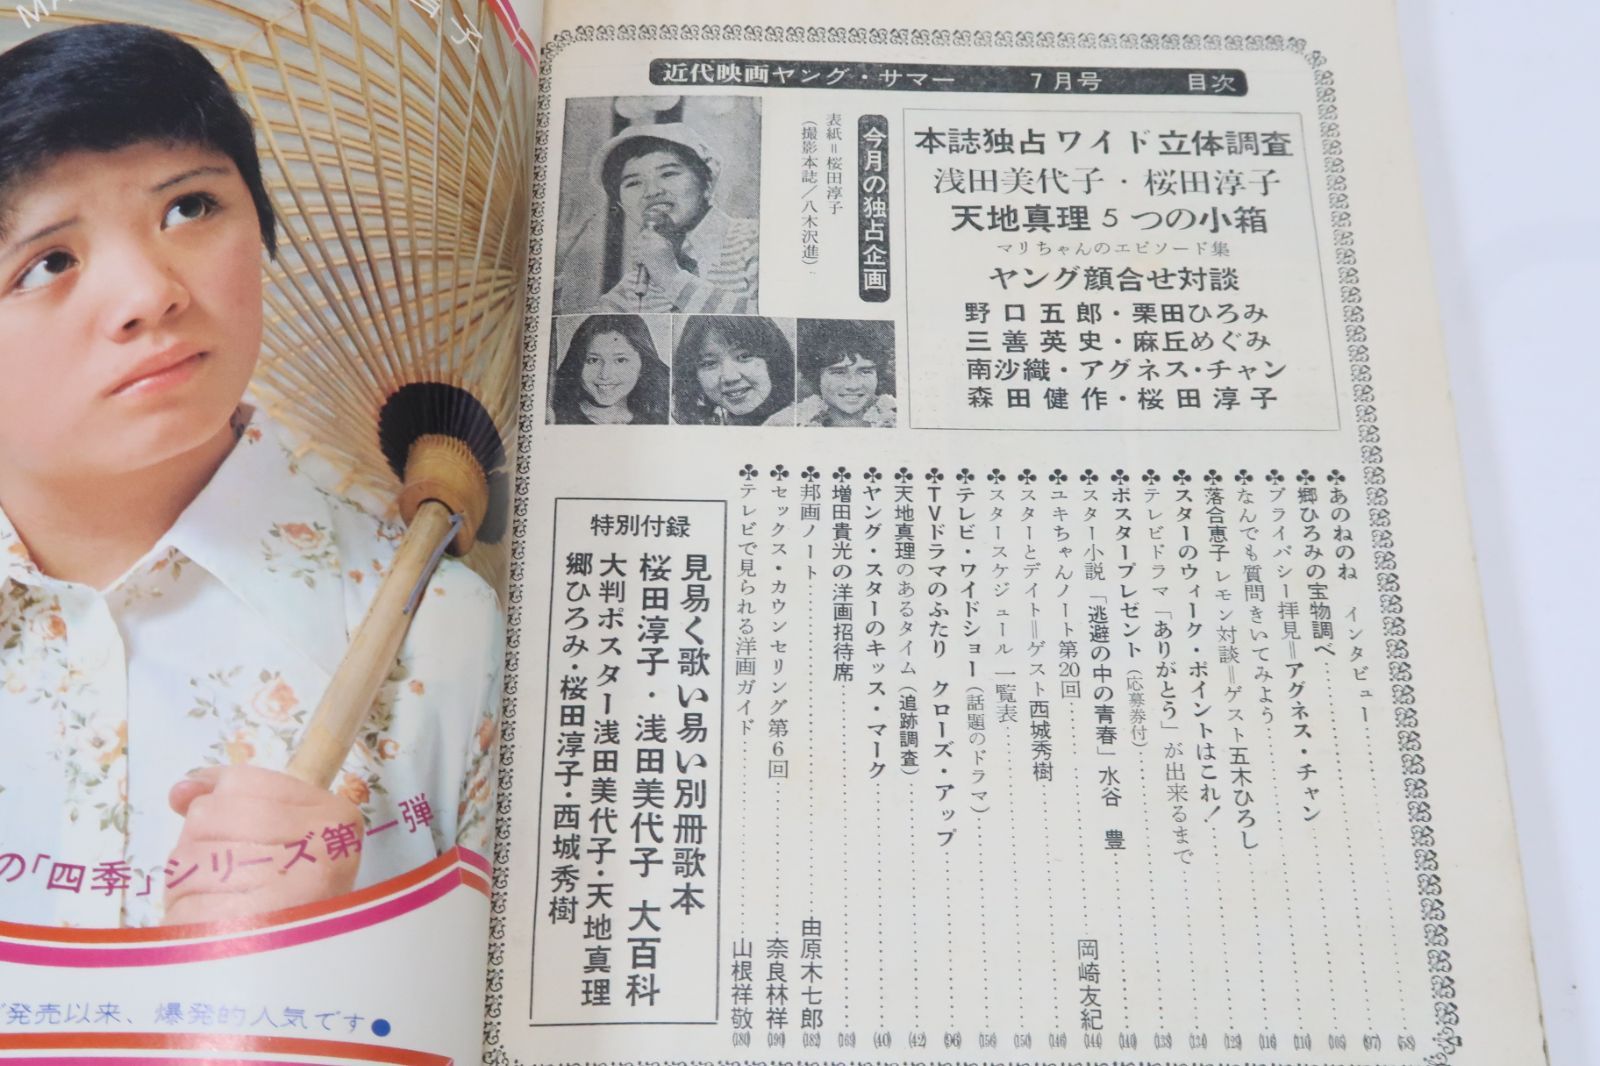 近代映画ヤング・サマー 7月号 目次
本誌独占ワイド立体調査
浅田美代子・桜田淳子
天地真理5つの小箱
マリちゃんのエピソード集
ヤング顔合せ対談
野口五郎・栗田ひろみ
三善英史・麻丘めぐみ
南沙織・アグネス・チャン
森田健作・桜田淳子
今月の独占企画
表紙＝桜田淳子
(撮影本誌／八木沢進)
♣あのねのね インタビュー
♣郷ひろみの宝物調べ
♣プライバシー拝見＝アグネス・チャン
♣なんでも質問きいてみよう
♣落合恵子レモン対談＝ゲスト五木ひろし
♣スターのウィーク・ポイントはこれ!
♣テレビドラマ「ありがとう」が出来るまで
♣ポスタープレゼント(応募券付)
♣スター小説「逃避の中の青春」水谷 豊
♣ユキちゃんノート第20回 岡崎友紀
♣スターとデイト＝ゲスト西城秀樹
♣スタースケジュール一覧表
♣テレビ・ワイドショー(話題のドラマ)
♣TVドラマのふたり クローズ・アップ
♣天地真理のあるタイム(追跡調査)
♣ヤング・スターのキッス・マーク
♣増田貴光の洋画招待席
♣邦画ノート 由原木七郎
♣セックス・カウンセリング第6回 奈良林祥
♣テレビで見られる洋画ガイド 山根祥敬
(58)
(97)
(129)
(134)
(138)
(140)
(144)
(146)
(150)
(156)
(96)
(42)
(40)
(163)
(182)
(190)
(180)
特別付録
見易く歌い易い別冊歌本
桜田淳子・浅田美代子 大百科
大判ポスター浅田美代子・天地真理
郷ひろみ・桜田淳子・西城秀樹
の「四季」シリーズ第一弾
発売以来、爆発的人気です●